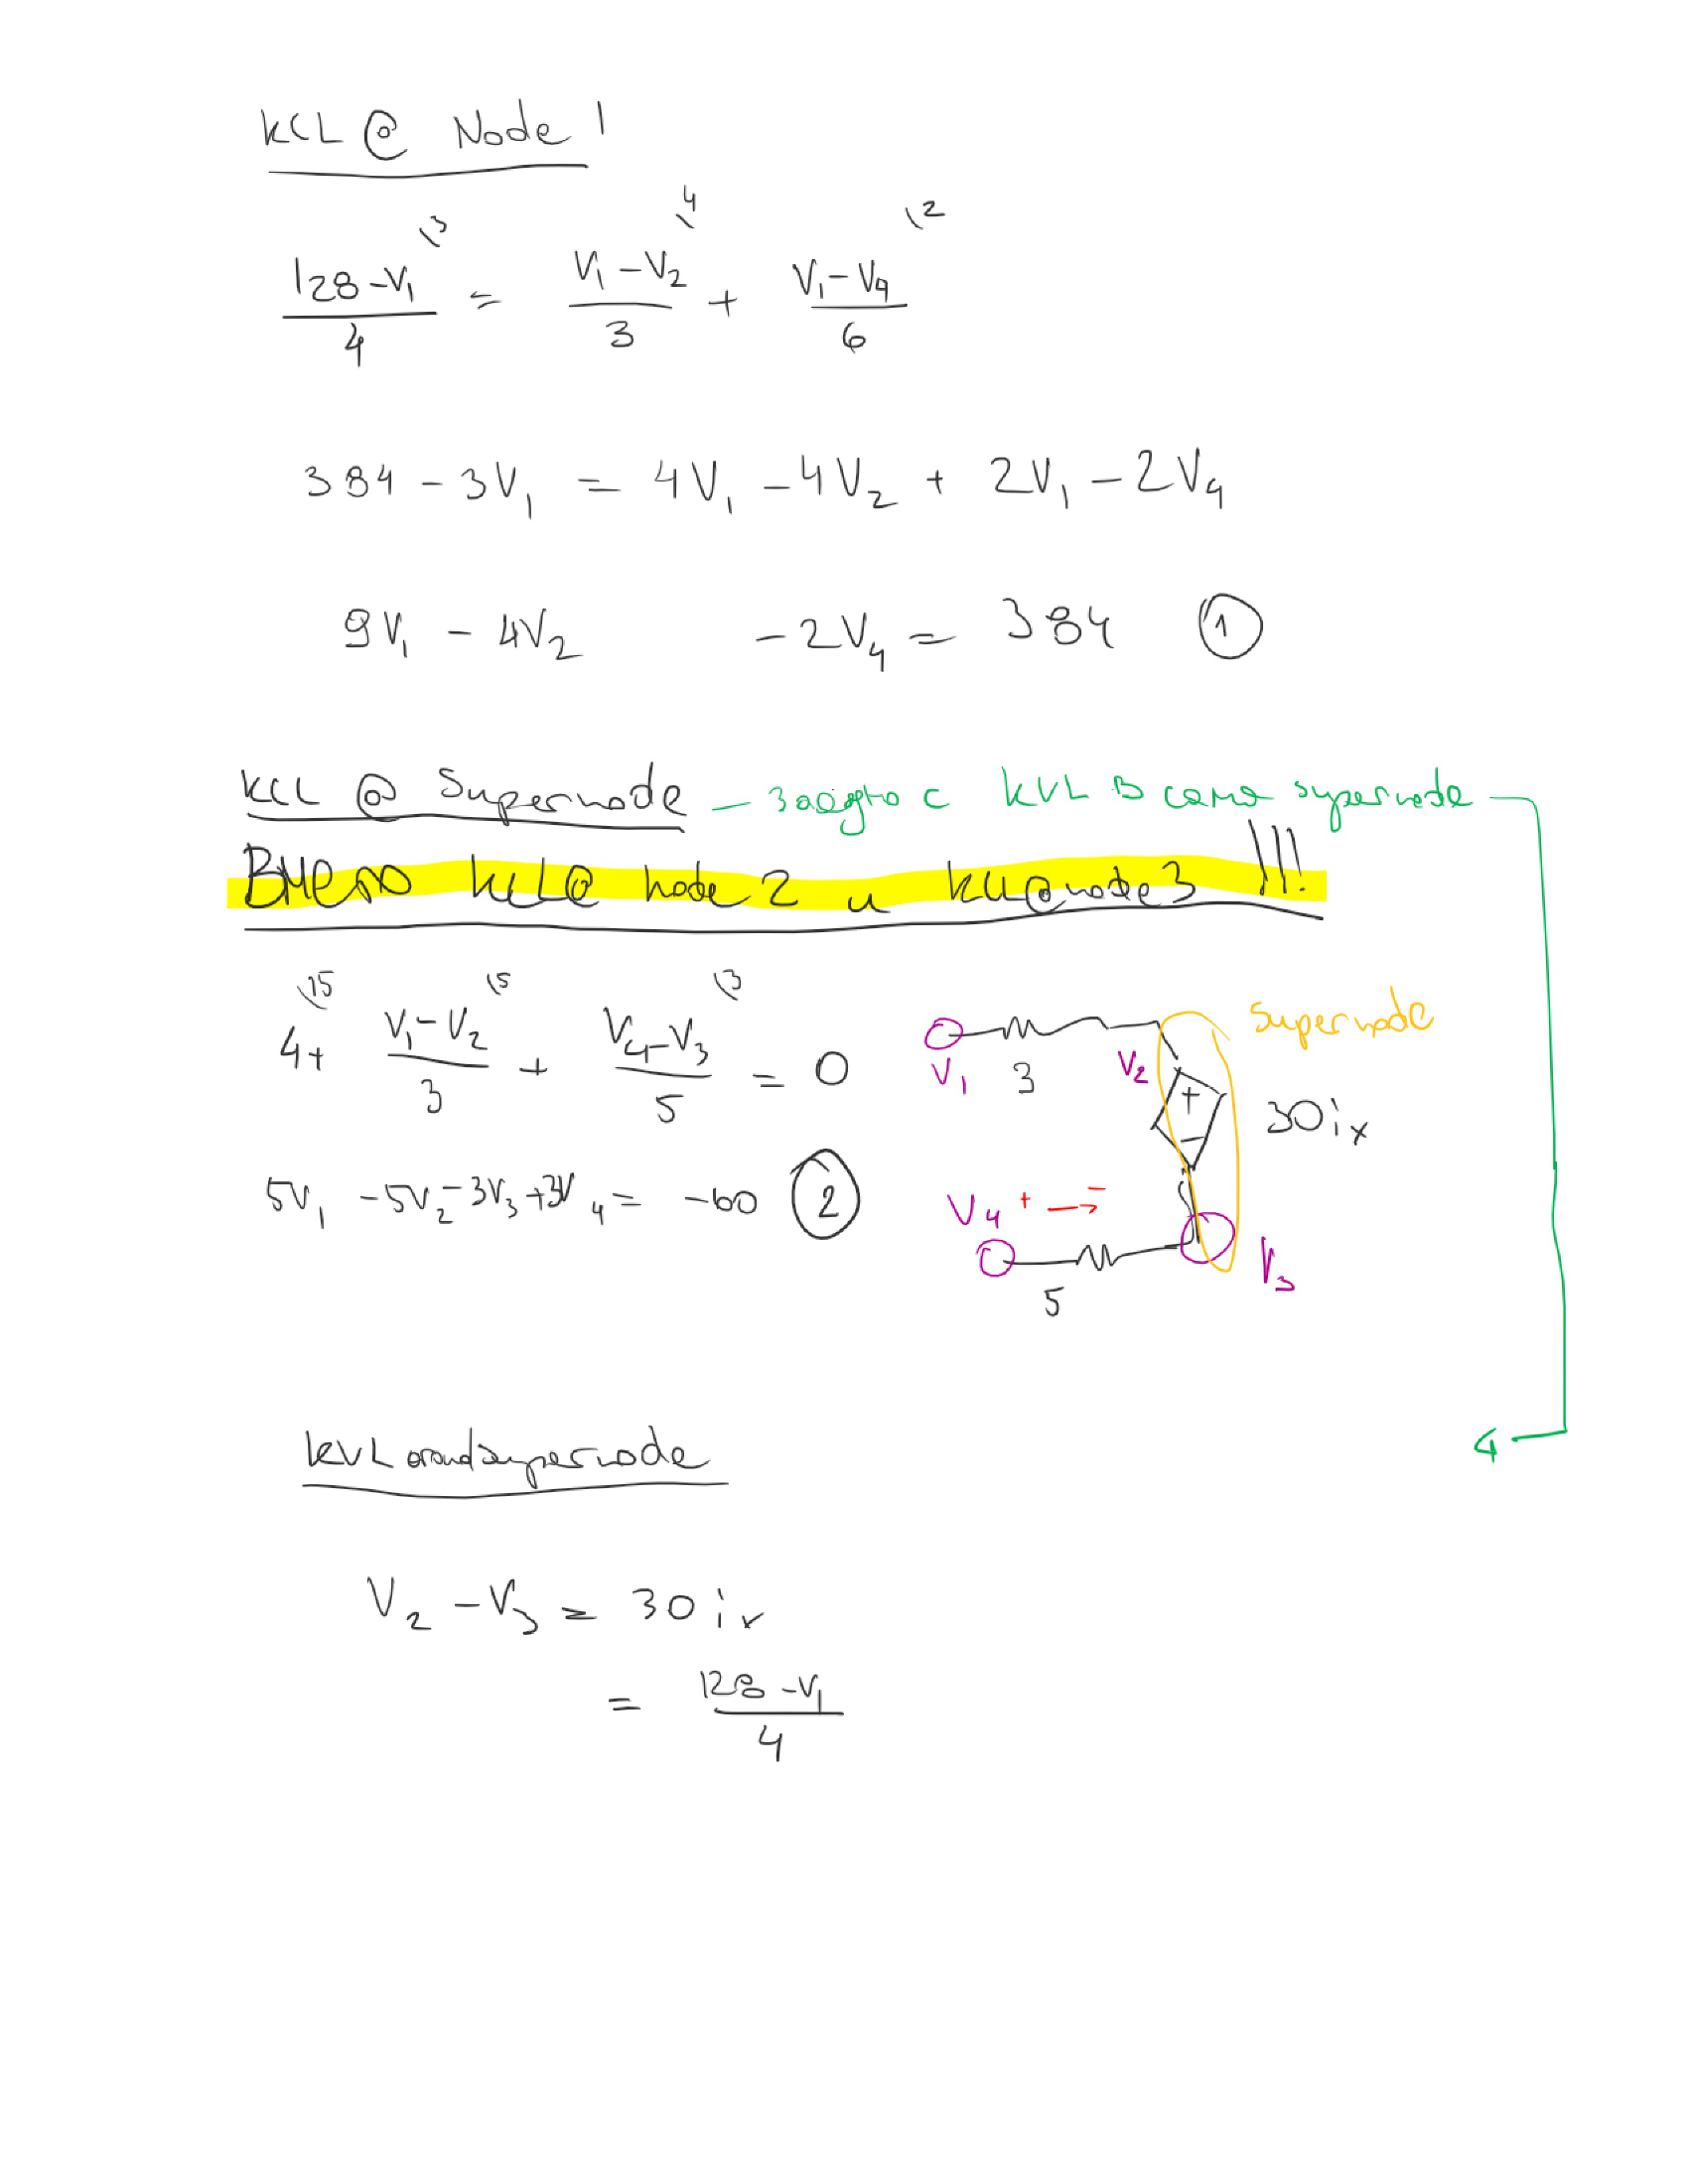 KCL @ Node 1
\3 \4 \2
128-V₁ / 4 = V₁-V₂ / 3 + V₁-V₄ / 6
384 - 3V₁ = 4V₁ - 4V₂ + 2V₁ - 2V₄
9V₁ - 4V₂ - 2V₄ = 384 ①
KCL @ Supernode - заедно с KVL в сама supernode
Вместо KCL@ node 2 и KCL@node3 !!!
\15 \5 \3
4+ V₁-V₂ / 3 + V₄-V₃ / 5 = 0
5V₁ -5V₂ -3V₃ +3V₄ = -60 ②
supernode
V₁ 3 V₂
+
-
30ix
V₄ + → -
5
V₃
KVL around supernode
V₂ - V₃ = 30ix
= 128-V₁ / 4